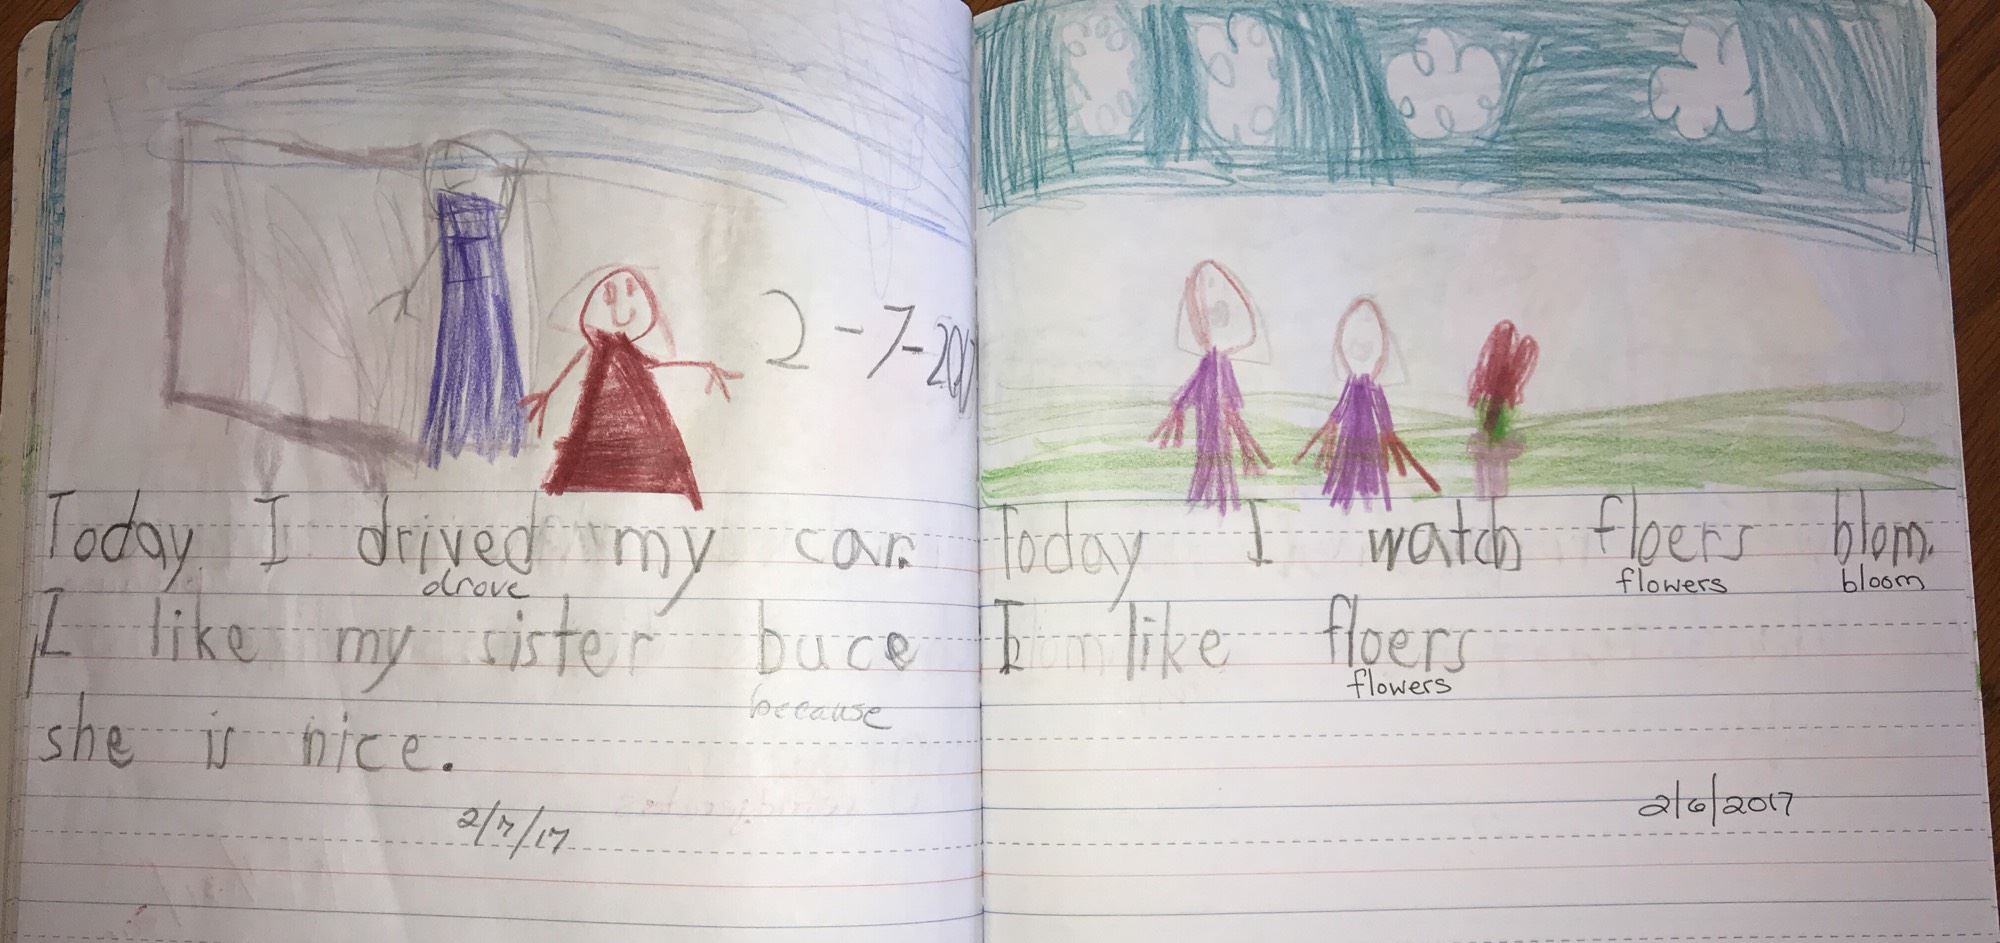 2-7-2017
Today I drived my car.
drove
I like my sister buce
because
she is nice.
2/7/17
Today I watch floers blom.
flowers bloom
I like floers
flowers
2/6/2017